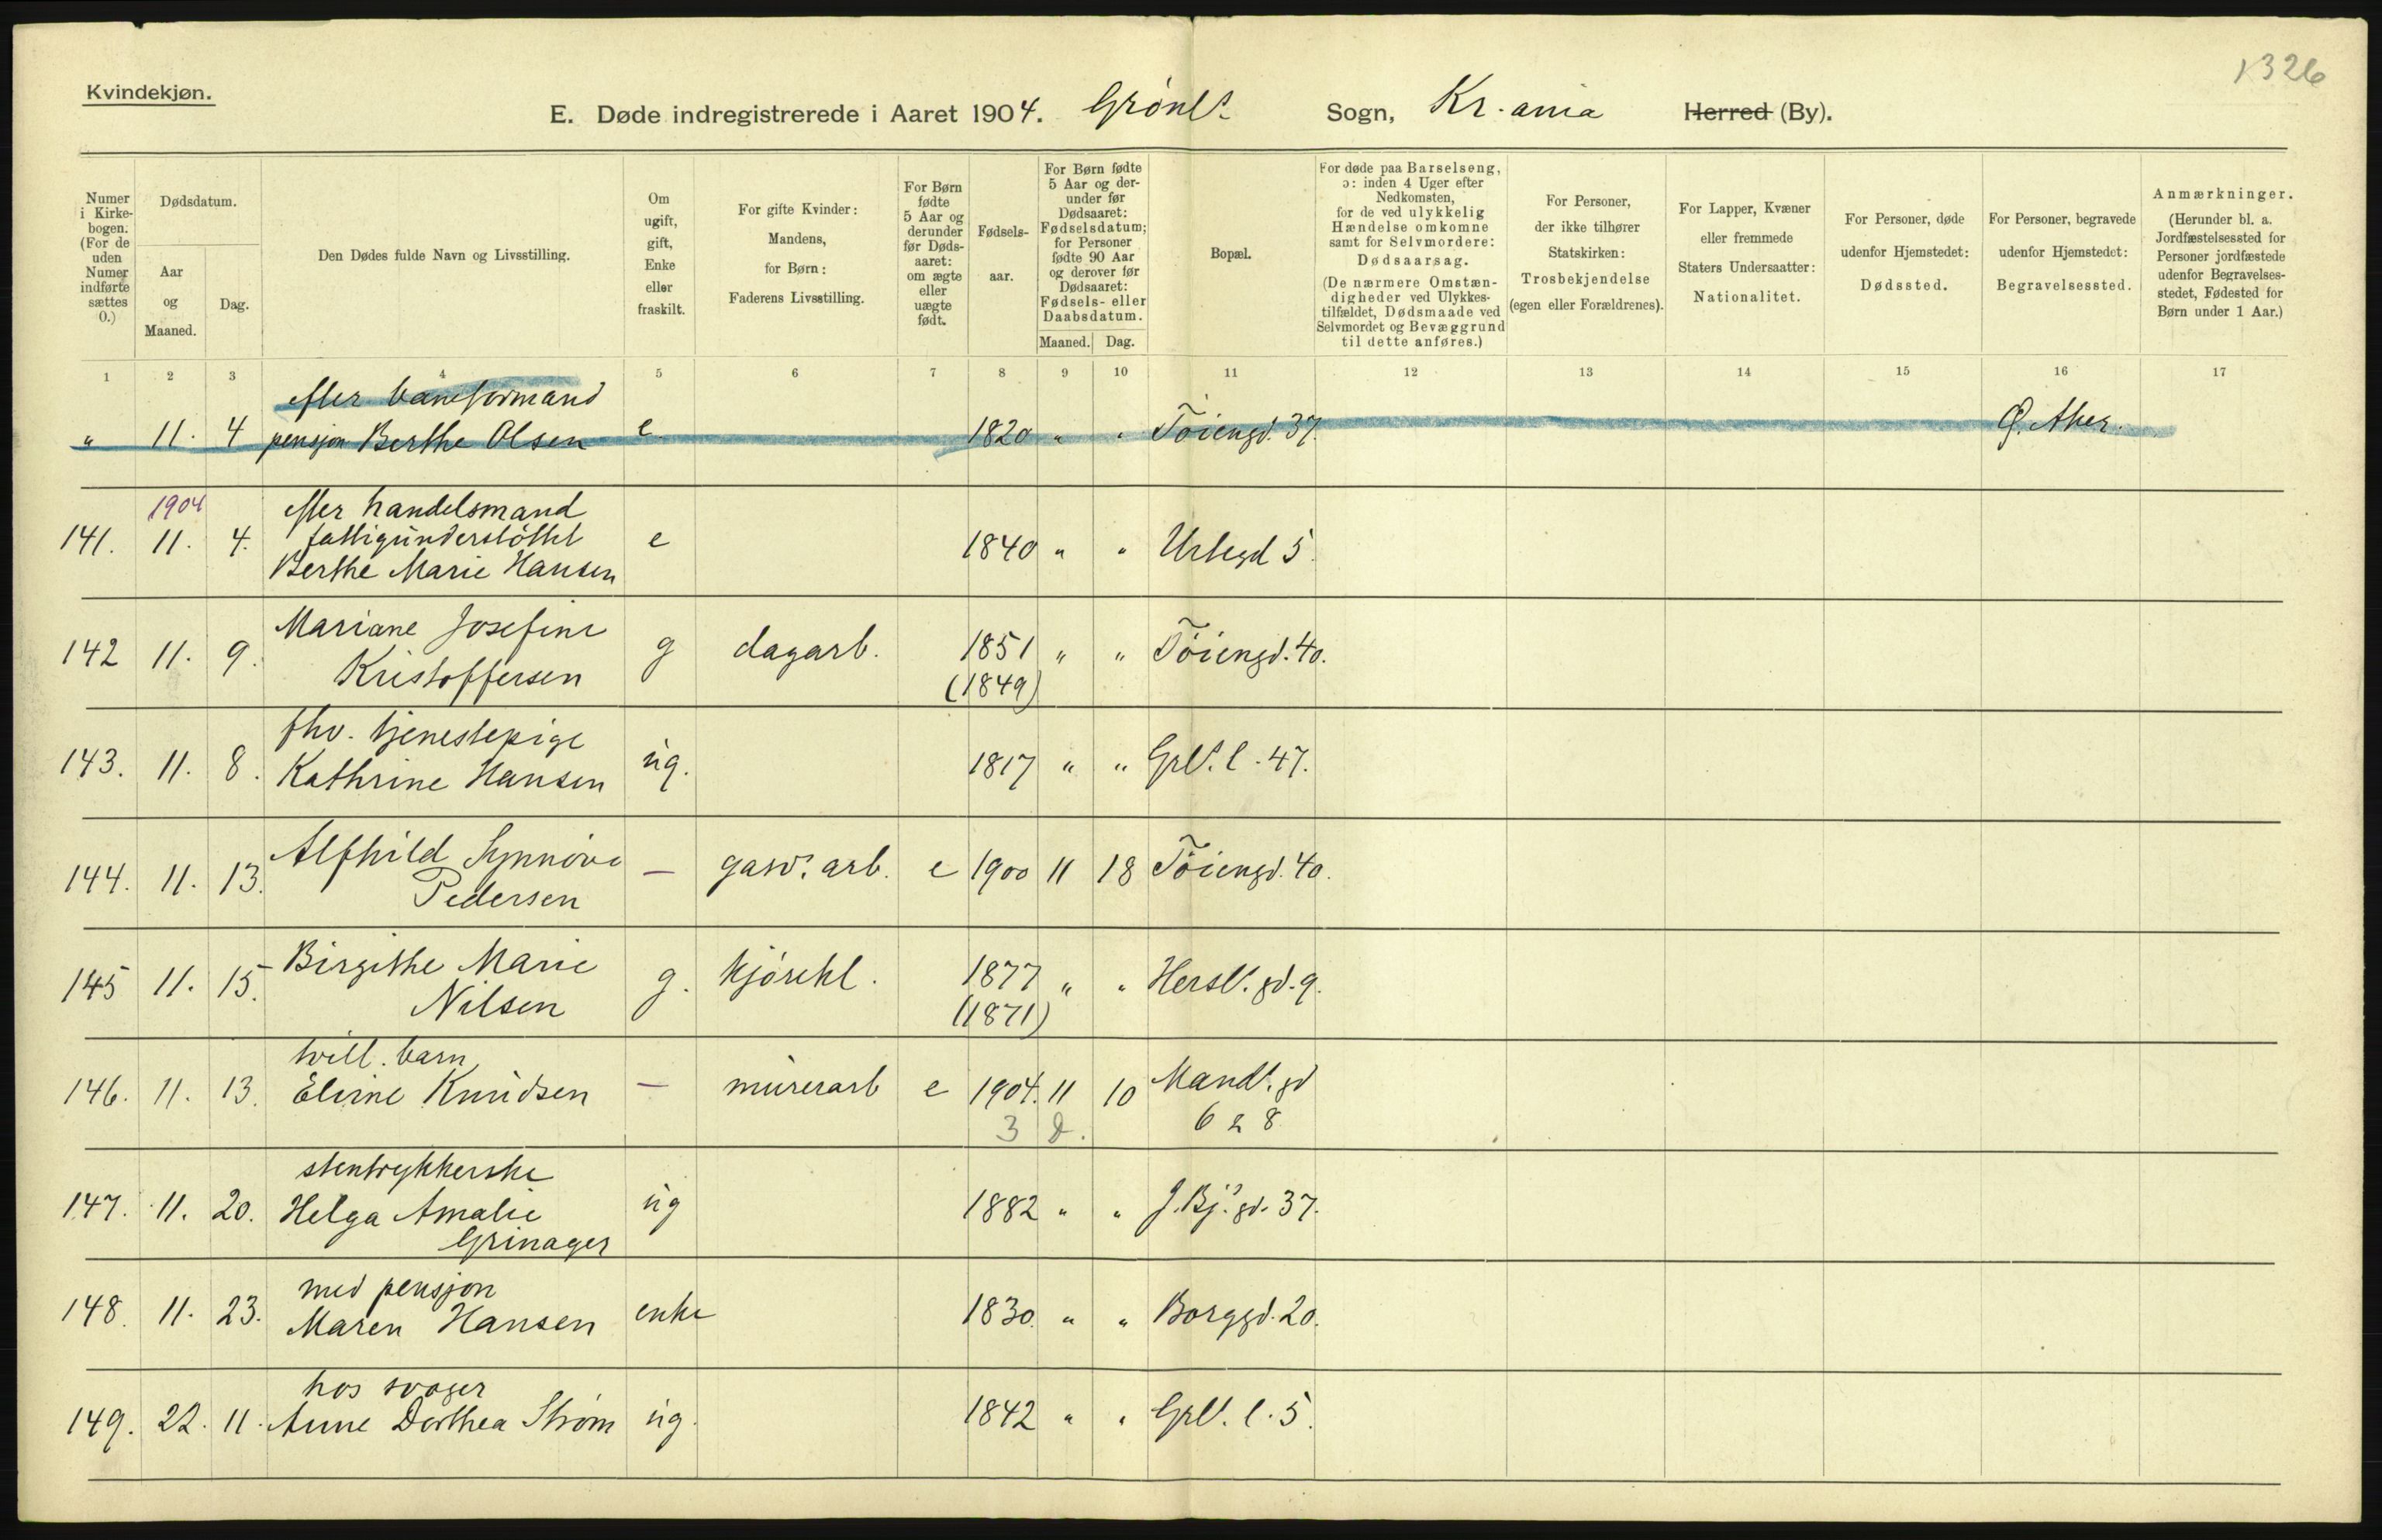 1326
Kvindekjøn.
E. Døde indregistrerede i Aaret 1904. Grønls Sogn, Kr.ania Herred (By).
Numer i Kirkebogen. (For de uden Numer indførte sættes 0.)
Dødsdatum.
Aar og Maaned.
Dag.
Den Dødes fulde Navn og Livsstilling.
Om ugift, gift, Enke eller fraskilt.
For gifte Kvinder: Mandens, for Børn: Faderens Livsstilling.
For Børn fødte 5 Aar og derunder før Dødsaaret: om ægte eller uægte født.
Fødselsaar.
For Børn fødte 5 Aar og derunder før Dødsaaret: Fødselsdatum; for Personer fødte 90 Aar og derover før Dødsaaret: Fødsels- eller Daabsdatum.
Maaned. Dag.
Bopæl.
For døde paa Barselseng, ɔ: inden 4 Uger efter Nedkomsten, for de ved ulykkelig Hændelse omkomne samt for Selvmordere: Dødsaarsag. (De nærmere Omstændigheder ved Ulykkestilfældet, Dødsmaade ved Selvmordet og Bevæggrund til dette anføres.)
For Personer, der ikke tilhører Statskirken: Trosbekjendelse (egen eller Forældrenes).
For Lapper, Kvæner eller fremmede Staters Undersaatter: Nationalitet.
For Personer, døde udenfor Hjemstedet: Dødssted.
For Personer, begravede udenfor Hjemstedet: Begravelsessted.
Anmærkninger. (Herunder bl. a. Jordfæstelsessted for Personer jordfæstede udenfor Begravelsesstedet, Fødested for Børn under 1 Aar.)
1 2 3 4 5 6 7 8 9 10 11 12 13 14 15 16 17
efter baneformand
" 11. 4 pensjon Berthe Olsen e 1820 " " Tøiengd. 37. Ø. Aker.
1904 efter handelsmand
141. 11. 4. fattigunderstøttet e 1840 " " Urtegd 5
Berthe Marie Hansen
Mariane Josefine
142 11. 9. Kristoffersen g dagarb. 1851 " " Tøiengd. 40.
(1849)
fhv. tjenestepige
143. 11. 8. Kathrine Hansen ug. 1817 " " Grls. l. 47.
Alfhild Synnøve
144. 11. 13. Pedersen — gasv. arb. e 1900 11 18 Tøiengd. 40.
Birgithe Marie
145 11. 15. Nilsen g. kjørekl. 1877 " " Hersl. gd. 9.
(1871)
tvill. barn
146. 11. 13. Elvine Knudsen — murerarb e 1904. 11 10 Mands. gd
3 D. 6 & 8
stentrykkerske
147. 11. 20. Helga Amalie ug 1882 " " J. Bj.s gd. 37.
Grinager
med pensjon
148. 11. 23. Maren Hansen enke 1830. " " Borggd. 20.
hos svoger
149. 22. 11. Anne Dorthea Strøm ug. 1842 " " Grls. l. 5.